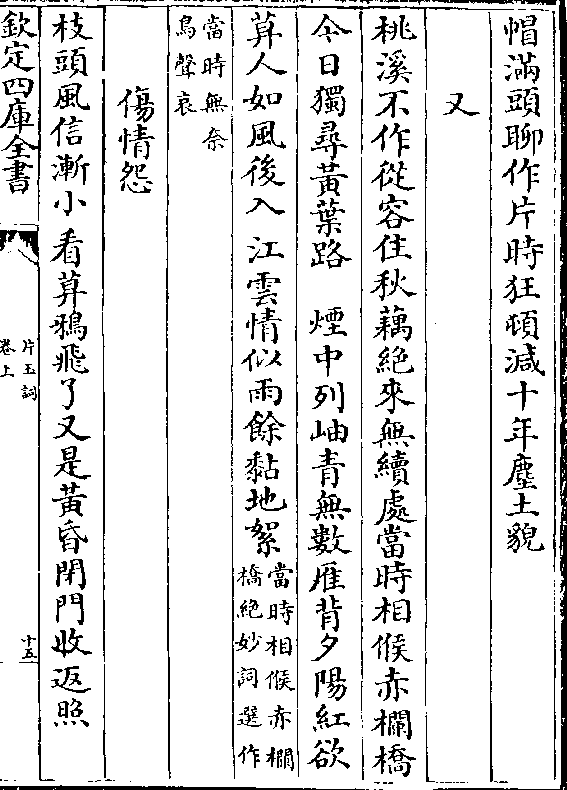 帽滿頭聊作片時狂頓減十年塵土貌
又
桃溪不作從容住秋藕絶來無續處當時相候赤欄橋
今日獨尋黃葉路　煙中列岫青無數雁背夕陽紅欲
莫人如風後入江雲情似雨餘黏地絮當時相候赤欄
橋絶妙詞選作
當時無奈
鳥聲哀
傷情怨
枝頭風信漸小看莫鴉飛了又是黃昏閉門收返照
欽定四庫全書
片玉詞
卷上
十五